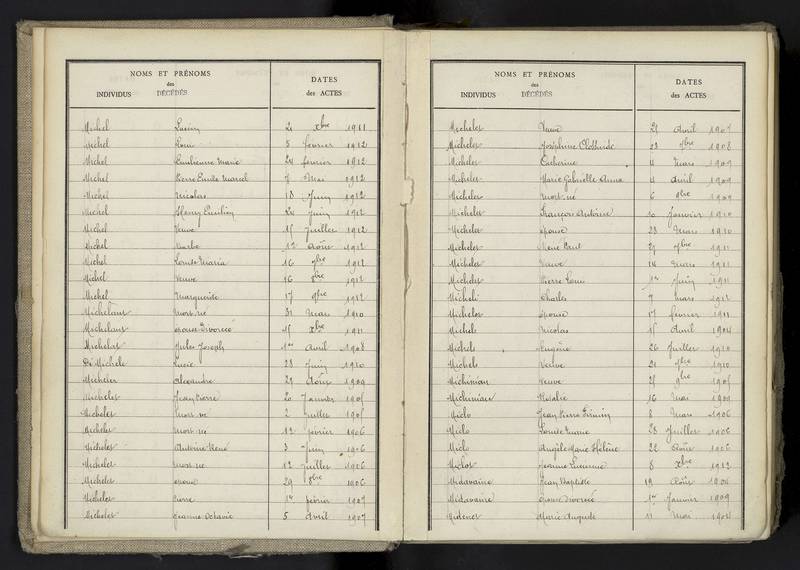 NOMS ET PRÉNOMS
des
INDIVIDUS DÉCÉDÉS
DATES
des ACTES
Michel Lucien 21 Xbre 1911
Michel Louis 5 février 1912
Michel Emilienne Marie 24 février 1912
Michel Pierre Emile Marcel 7 Mai 1912
Michel Nicolas 18 Juin 1912
Michel Henry Emilien 20 Juin 1912
Michel Veuve 15 Juillet 1912
Michel Barbe 12 Août 1912
Michel Louise Maria 16 7bre 1912
Michel Veuve 16 8bre 1912
Michel Marguerite 17 9bre 1912
Michelant Mort né 31 Mars 1910
Michelant épouse divorcée 15 Xbre 1911
Michelat Jules Joseph 1er Avril 1908
De Michele Lucie 28 Juin 1910
Michelet Alexandre 29 Août 1909
Michelet Jean Pierre 20 Janvier 1905
Michelet Mort né 2 Juillet 1905
Michelet Mort né 12 février 1906
Michelet Antoine René 3 Juin 1906
Michelet Mort né 12 Juillet 1906
Michelet épouse 29 8bre 1906
Michelet Pierre 1er février 1907
Michelet Jeanne Octavie 5 Avril 1907
NOMS ET PRÉNOMS
des
INDIVIDUS DÉCÉDÉS
DATES
des ACTES
Michelet Veuve 21 Avril 1907
Michelet Joséphine Clothilde 23 7bre 1908
Michelet Catherine 4 Mars 1909
Michelet Marie Gabrielle Anna 4 Avril 1909
Michelet Mort né 6 9bre 1909
Michelet François Antoine 20 Janvier 1910
Michelet épouse 28 Mars 1910
Michelet René Paul 27 7bre 1911
Michelet Veuve 14 Mars 1911
Michelet Pierre Louis 1er Juin 1911
Micheli Charles 7 Mars 1912
Michelot épouse 17 février 1911
Michels Nicolas 15 Avril 1904
Michels Eugène 26 Juillet 1910
Michels Veuve 21 7bre 1910
Michinian Veuve 25 9bre 1905
Michiniau Rosalie 16 Mai 1909
Miclo Jean Pierre Firmin 8 Mars 1906
Miclo Louise Marie 28 Juillet 1906
Miclo Angèle Marie Hélène 22 Août 1906
Miclot Jeanne Lucienne 8 Xbre 1912
Midavaine Jean Baptiste 19 Août 1904
Midavaine épouse divorcée 1er Janvier 1909
Midenet Marie Auguste 11 Mai 1904